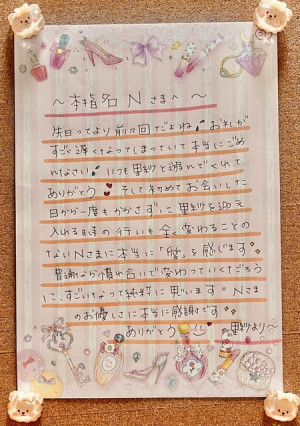 ～本指名Nさまへ～
先日ってより前々回だよね お礼が
すごく遅くなってしまっていて本当にごめ
んなさい いつも里紗と遊んでくれて
ありがとう♡そして初めてお会いした
日から一度もかかさずに里紗を迎え
入れる時の行いも全く変わることの
ないNさまに本当に「愛」を感じます
普通なら慣れ合いで変わっていくだろう
に、すごいなって純粋に思います。Nさま
のお優しさに本当に感謝です
ありがとう 里紗より～